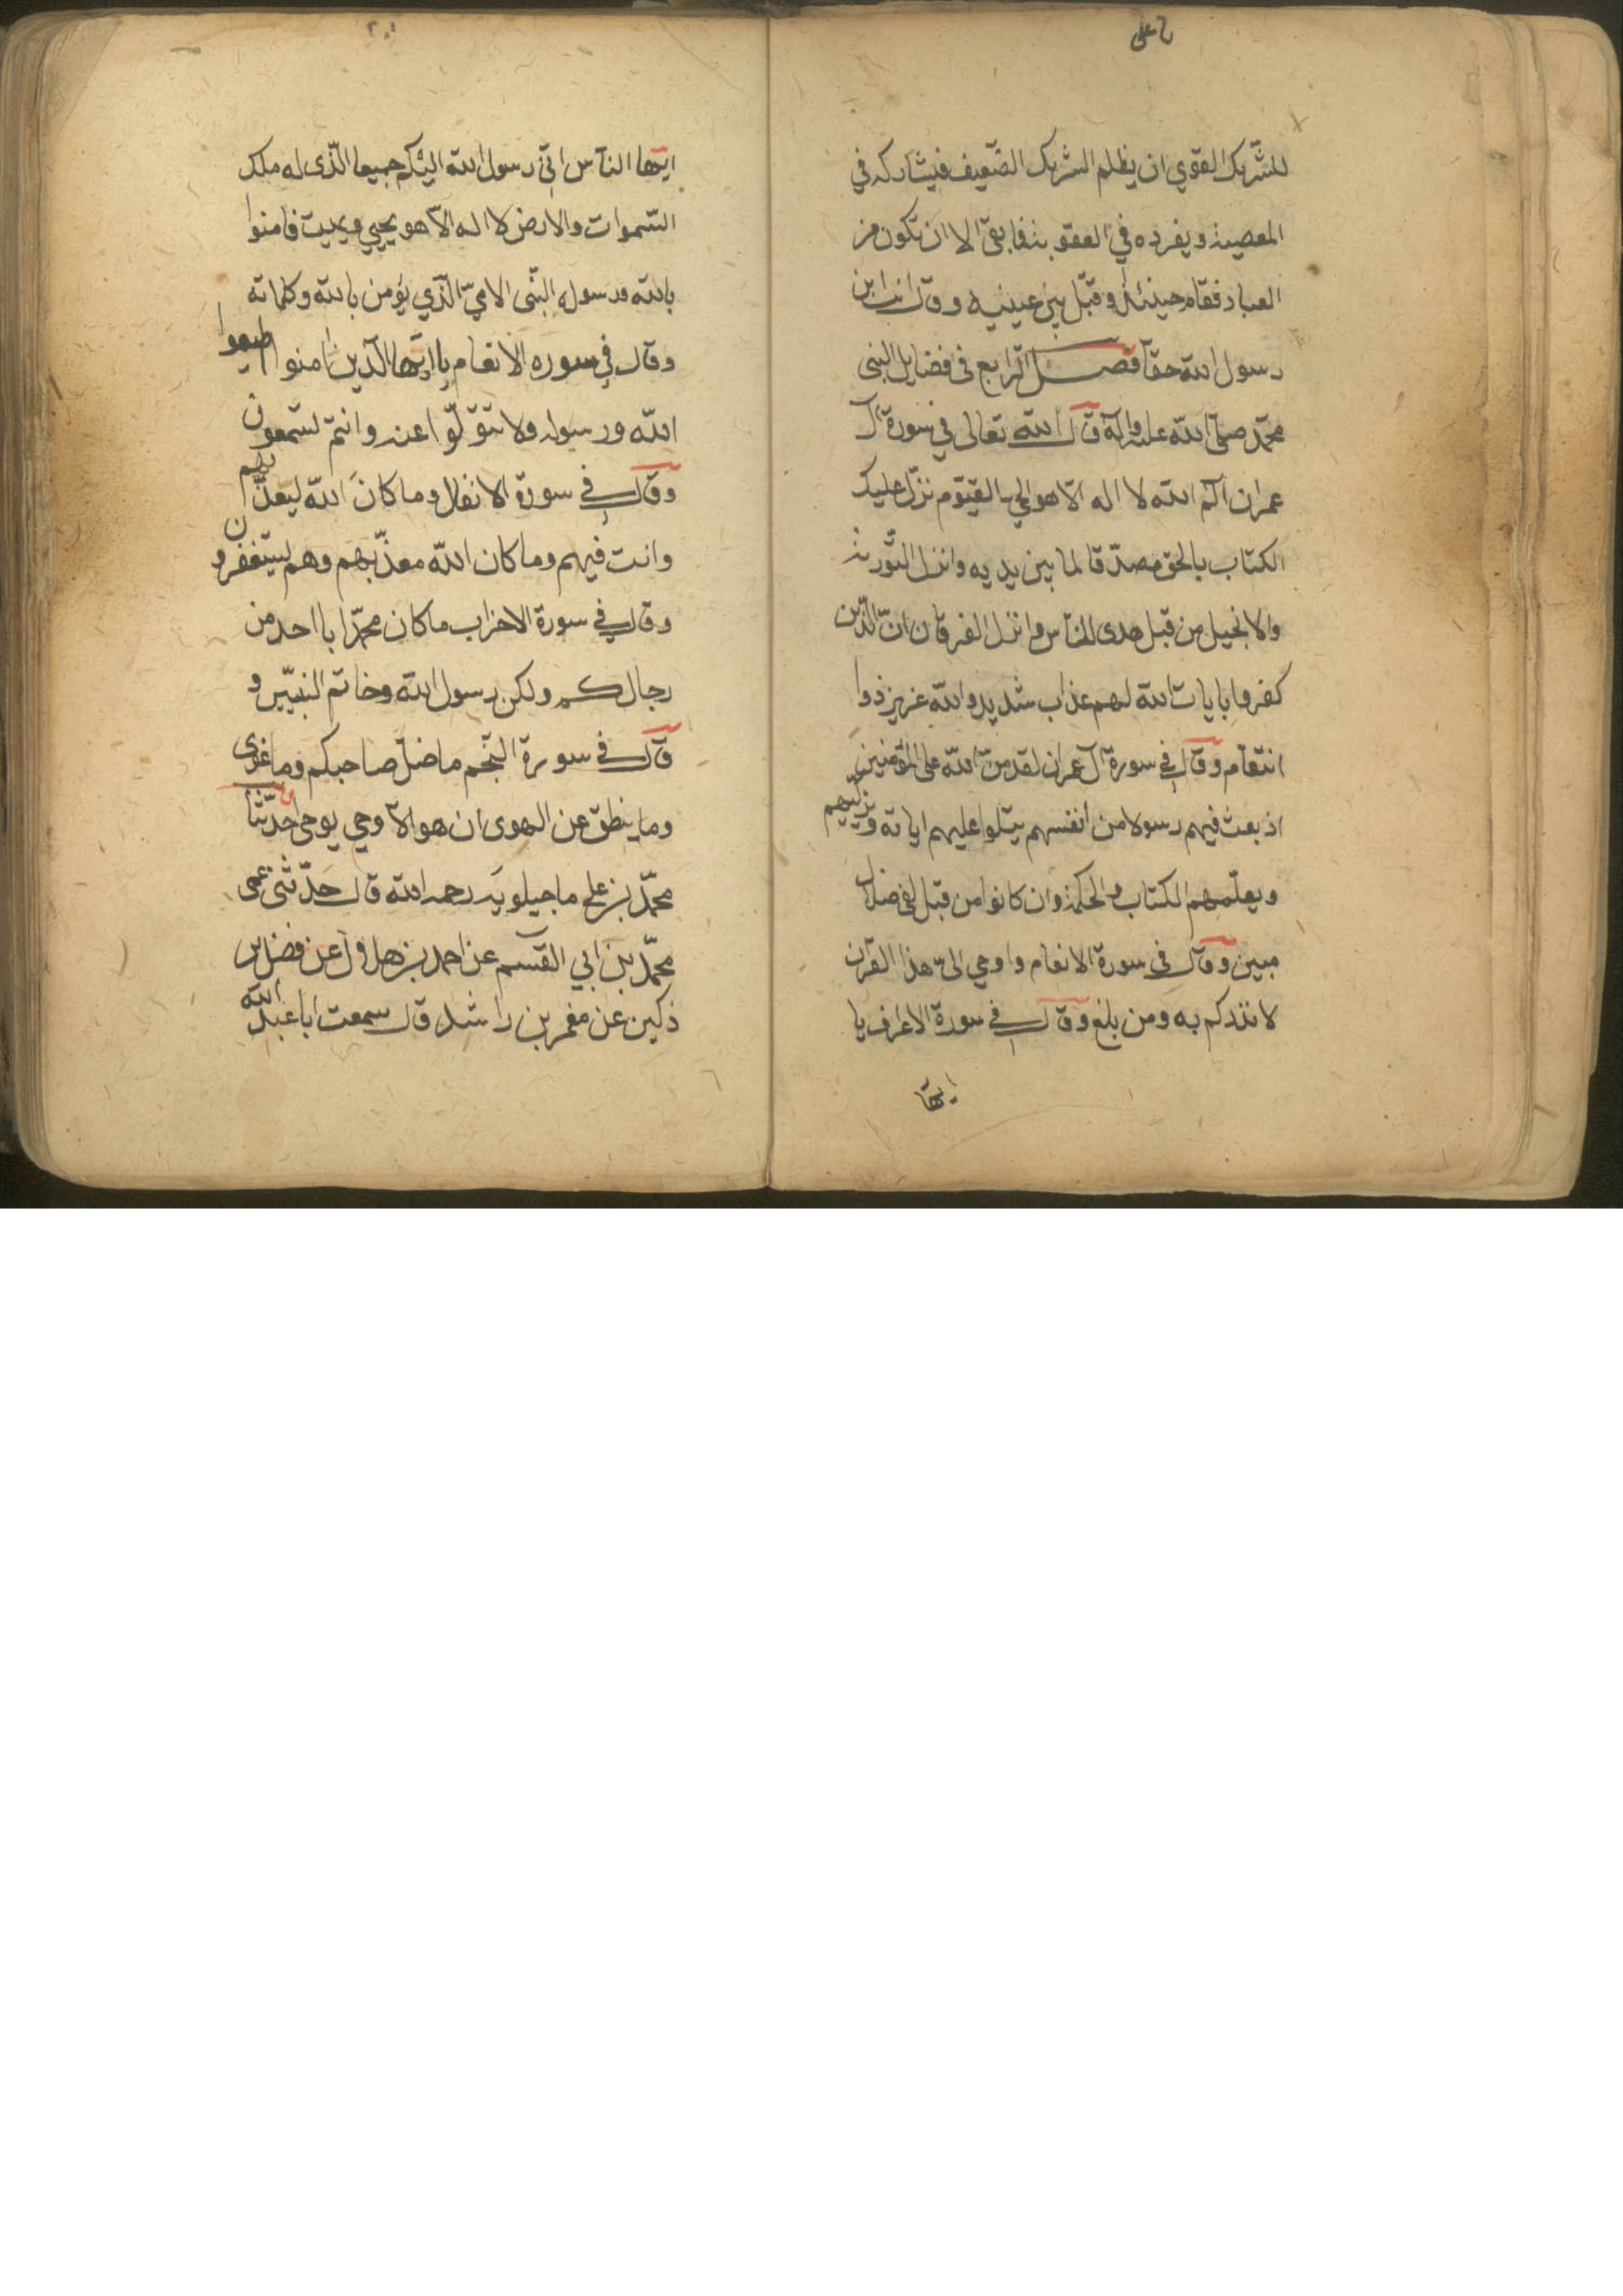 للشّريك القوي ان يظلم الشريك الضّعيف فيشاركه في
المعصية ويفرده في العقوبة فما بقي الا ان تكون من
العباد فقام حينئذ وقبّل بين عينيه وقال انت ابن
رسول الله حقا فصل الرّابع في فضايل النبي
محمّد صلّى الله عليه وآله قال الله تعالى في سورة آل
عمران الم الله لا اله الّا هو الحي القيّوم نزّل عليك
الكتاب بالحق مصدّقا لما بين يديه وانزل التّورية
والانجيل من قبل هدى للنّاس وانزل الفرقان انّ الّذين
كفروا بايات الله لهم عذاب شديد والله عزيز ذوا
انتقام وقال في سورة آل عمران لقد منّ الله على المؤمنين
اذ بعث فيهم رسولا من انفسهم يتلوا عليهم اياته ويزكّيهم
ويعلّمهم الكتاب والحكمة وان كانوا من قبل لفي ضلال
مبين وقال في سورة الانعام واوحي الىّ هذا القرآن
لانذركم به ومن بلغ وقال في سورة الاعراف يا
ايها
ايّها النّاس انّي رسول الله اليكم جميعا الّذى له ملك
السّموات والارض لا اله الّا هو يحيي ويميت فامنوا
بالله ورسوله النّبى الاميّ الّذي يؤمن بالله وكلماته
وقال في سوره الانعام يا ايّها الّذين امنوا اطيعوا
الله ورسوله ولا تتولّوا عنه وانتم تسمعون
وقال في سورة الانفال وما كان الله ليعذّبهم
وانت فيهم وما كان الله معذّبهم وهم يستغفرون
وقال في سورة الاحزاب ما كان محمّد ابا احد من
رجالكم ولكن رسول الله وخاتم النبيّين و
قال في سورة النّجم ما ضلّ صاحبكم وما غوى
وما ينطق عن الهوى ان هو الّا وحي يوحى حدّثنا
محمّد بن على ماجيلويه رحمه الله قال حدّثنى عمى
محمّد بن ابي القسم عن احمد بن هلال عن فضل بن
ذكين عن معمر بن راشد قال سمعت ابا عبد الله